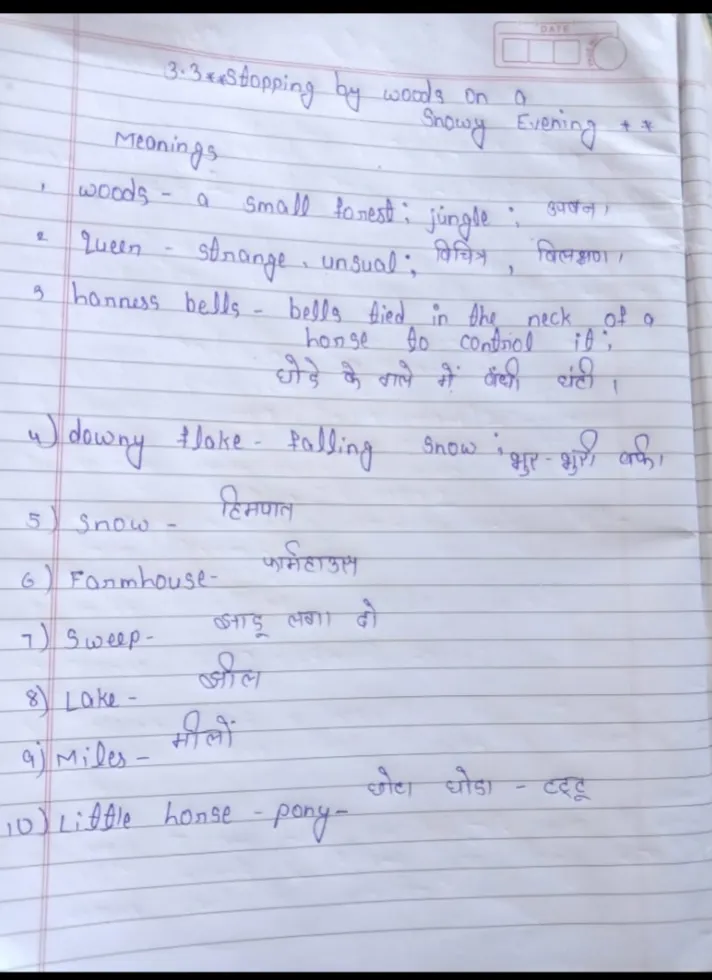 DATE
3.3 **Stopping by woods on a
Snowy Evening **
Meanings
1 woods - a small forest; jungle; उपवन।
2 queer - strange, unsual; विचित्र, विलक्षण।
3 harness bells - bells tied in the neck of a
horse to control it;
घोड़े के गले में बंधी घंटी ।
4) downy flake - falling snow; भुर-भुरी बर्फ।
5) Snow - हिमपात
6) Farmhouse - फार्महाउस
7) Sweep - झाडू लगा दो
8) Lake - झील
9) Miles - मीलों
10) Little horse - pony - छोटा घोडा - टट्टू